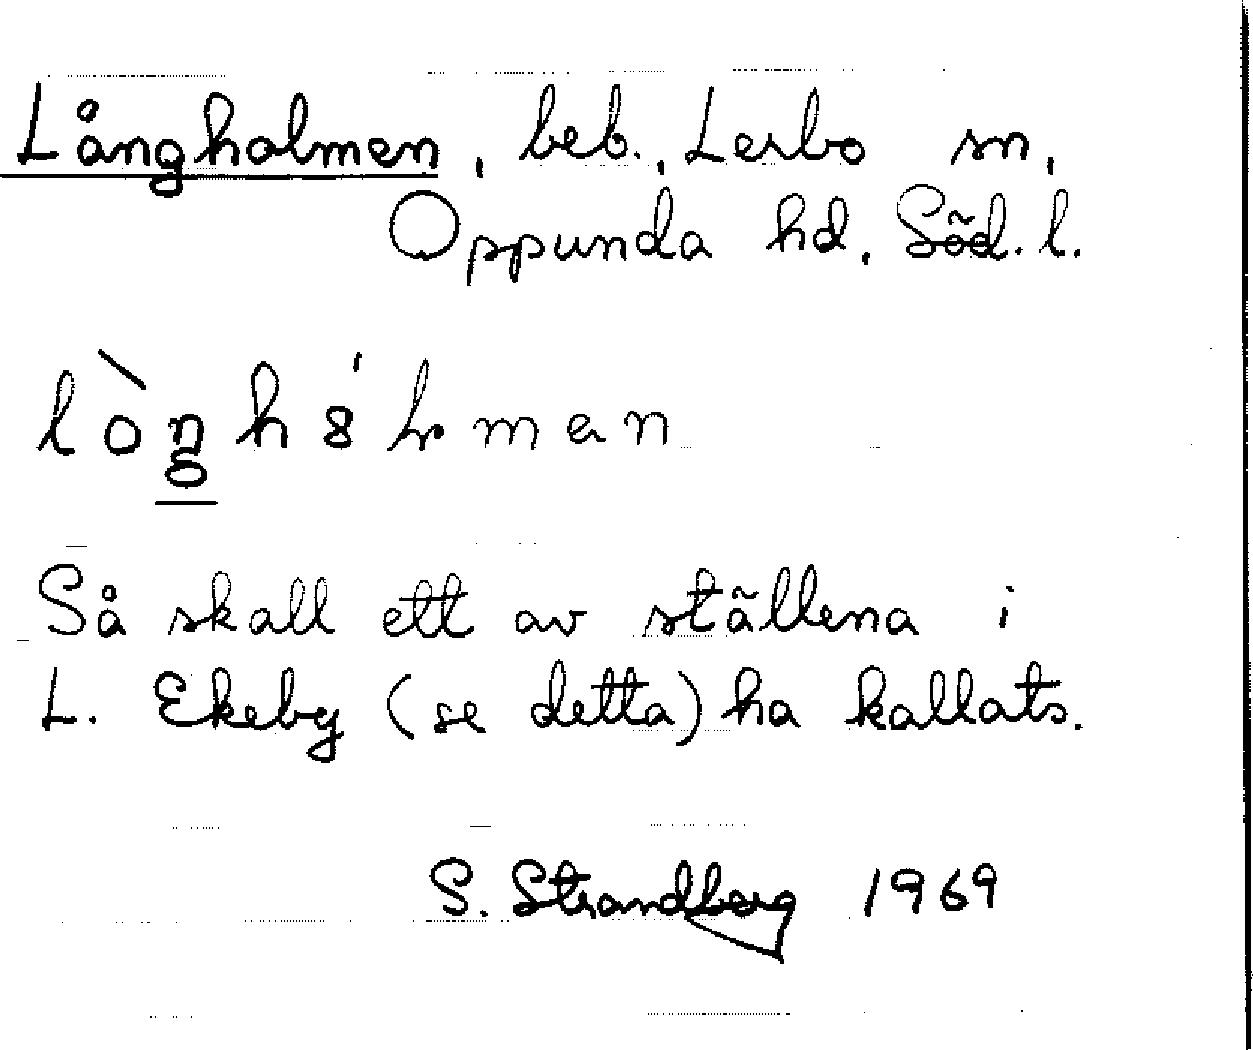 Långholmen, beb., Lerbo sn,
Oppunda hd, Söd. l.
Så skall ett av ställena i
L. Ekeby (se detta) ha kallats.
S. Strandberg 1969